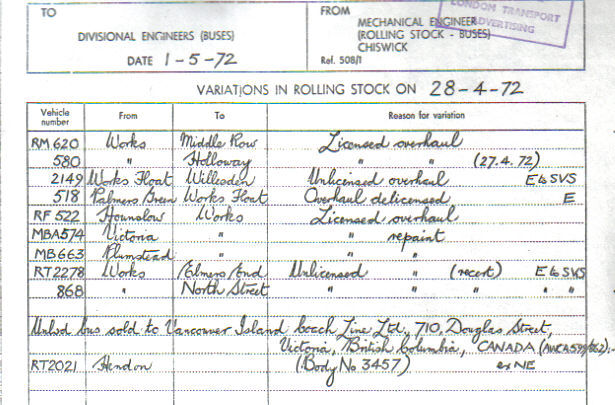 TO
DIVISIONAL ENGINEERS (BUSES)
DATE 1-5-72
FROM
MECHANICAL ENGINEER
(ROLLING STOCK - BUSES)
CHISWICK
Ref. 508/1
LONDON TRANSPORT
ADVERTISING
VARIATIONS IN ROLLING STOCK ON 28-4-72
Vehicle number From To Reason for variation
RM 620 Works Middle Row Licensed overhaul
580 " Holloway " " (27.4.72)
2149 Works Float Willesden Unlicensed overhaul E to SVS
518 Palmers Green Works Float Overhaul delicensed E
RF 522 Hounslow Works Licensed overhaul
MBA574 Victoria " " repaint
MB663 Plumstead " " "
RT2278 Works Elmers End Unlicensed " (recert) E to SVS
868 " North Street " " " " "
Unlsd bus sold to Vancouver Island Coach Line Ltd., 710, Douglas Street,
Victoria, British Columbia, CANADA
RT2021 Hendon (Body No 3457) ex NE